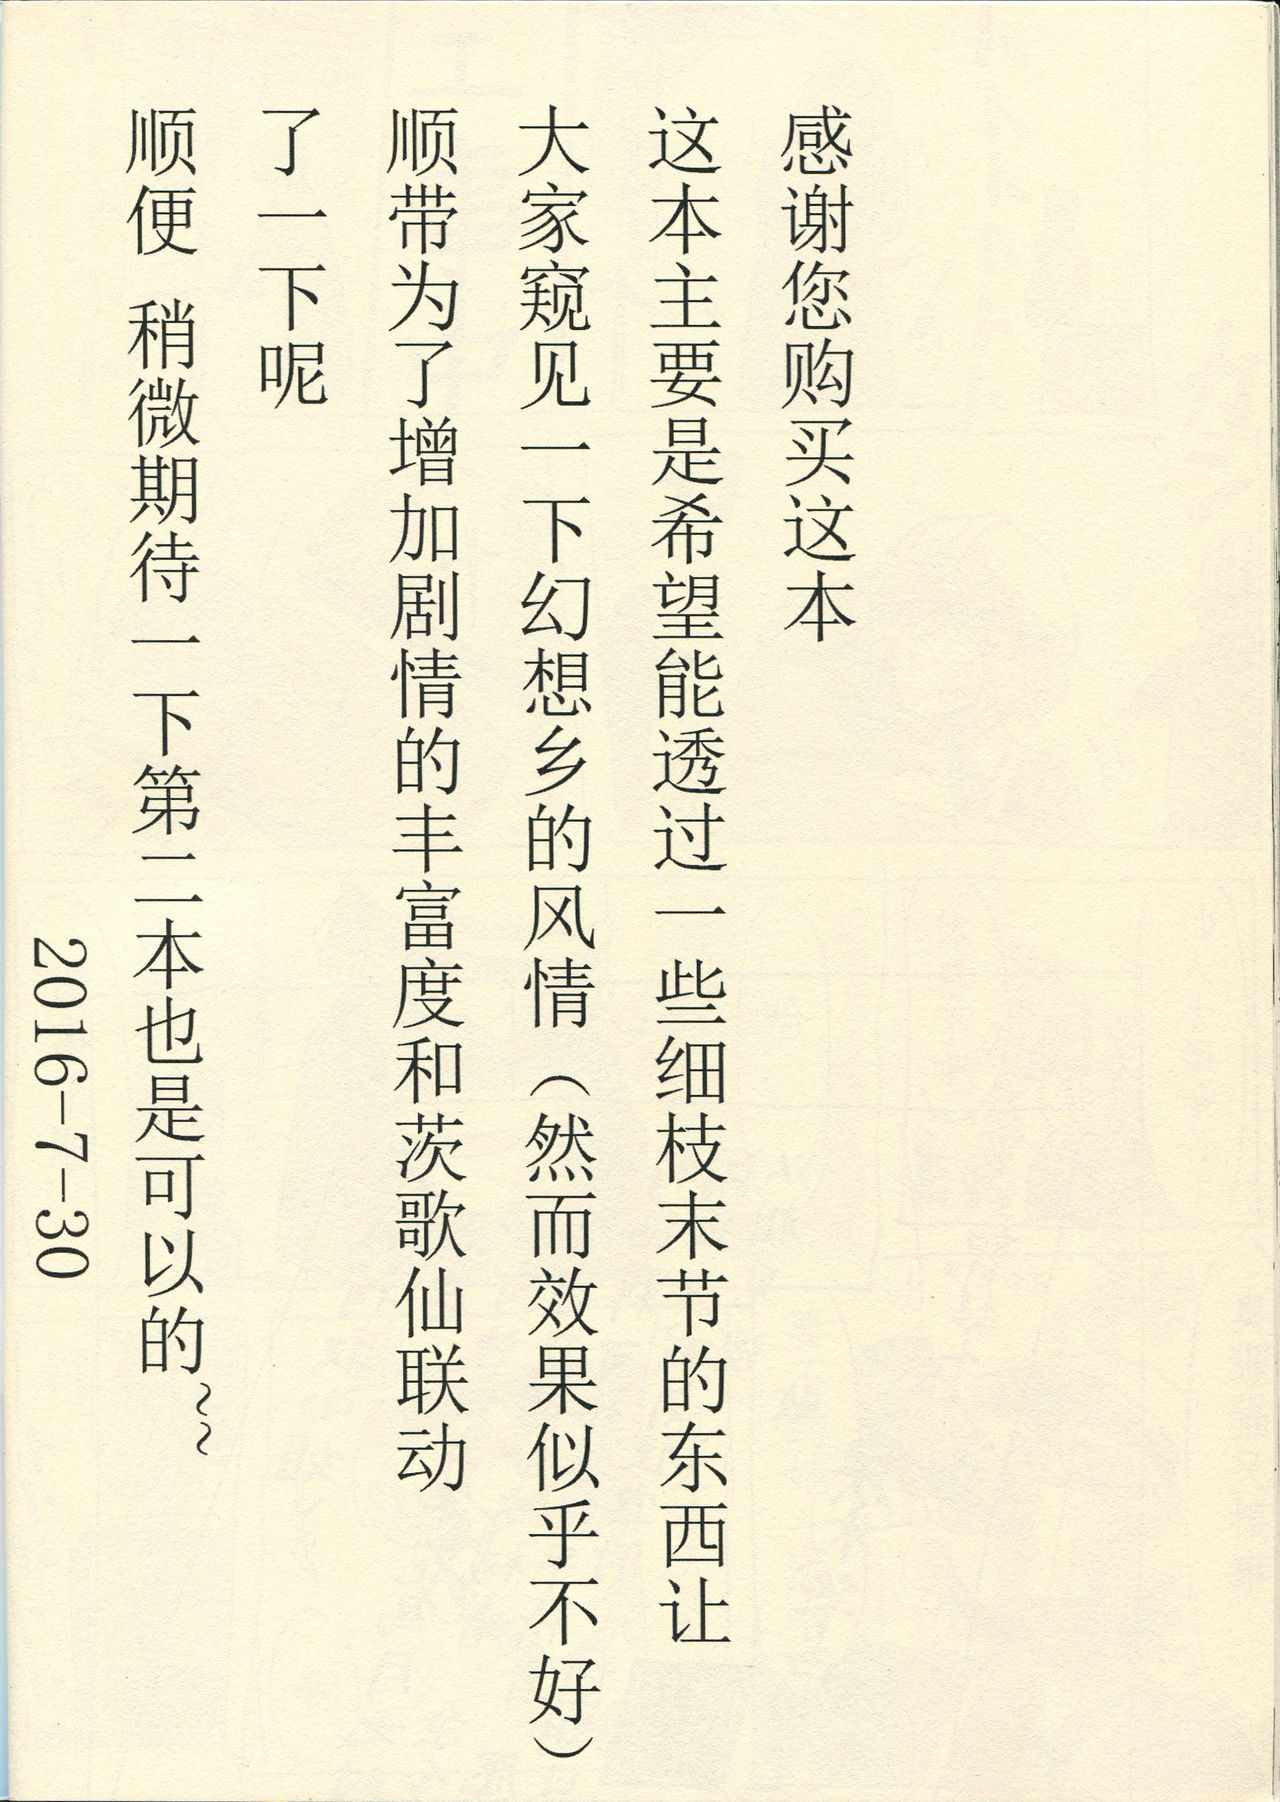 感谢您购买这本
这本主要是希望能透过一些细枝末节的东西让
大家窥见一下幻想乡的风情（然而效果似乎不好）
顺带为了增加剧情的丰富度和茨歌仙联动
了一下呢
顺便 稍微期待一下第二本也是可以的~~
2016-7-30